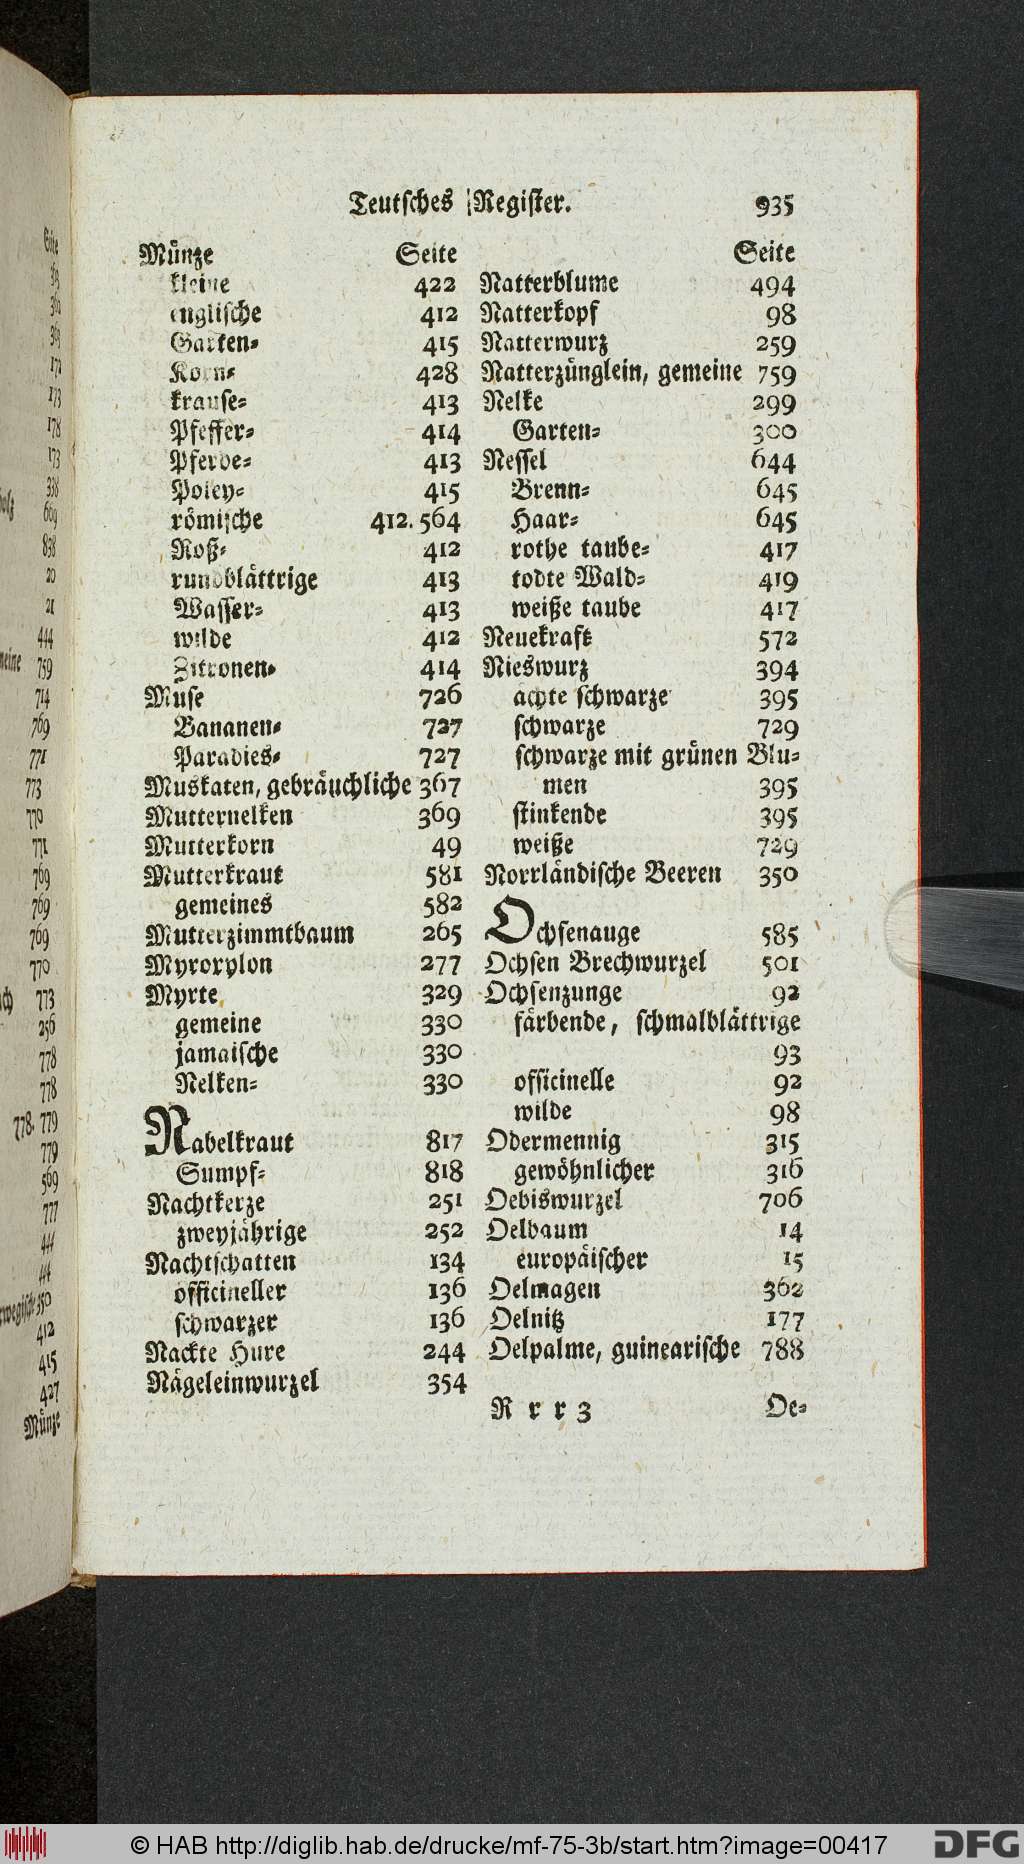 Teutsches Register. 935
Münze Seite
kleine 422
englische 412
Garten- 415
Korn- 428
krause- 413
Pfeffer- 414
Pferde- 413
Poley- 415
römische 412. 564
Roß- 412
rundblättrige 413
Wasser- 413
wilde 412
Zitronen- 414
Muse 726
Bananen- 727
Paradies- 727
Muskaten, gebräuchliche 367
Mutternelken 369
Mutterkorn 49
Mutterkraut 581
gemeines 582
Mutterzimmtbaum 265
Myroxylon 277
Myrte 329
gemeine 330
jamaische 330
Nelken- 330
Nabelkraut 817
Sumpf- 818
Nachtkerze 251
zweyjährige 252
Nachtschatten 134
officineller 136
schwarzer 136
Nackte Hure 244
Nägeleinwurzel 354
Seite
Natterblume 494
Natterkopf 98
Natterwurz 259
Natterzünglein, gemeine 759
Nelke 299
Garten- 300
Nessel 644
Brenn- 645
Haar- 645
rothe taube- 417
todte Wald- 419
weiße taube 417
Neuekraft 572
Nieswurz 394
ächte schwarze 395
schwarze 729
schwarze mit grünen Blu-
men 395
stinkende 395
weiße 729
Norrländische Beeren 350
Ochsenauge 585
Ochsen Brechwurzel 501
Ochsenzunge 92
färbende, schmalblättrige
93
officinelle 92
wilde 98
Odermennig 315
gewöhnlicher 316
Oebiswurzel 706
Oelbaum 14
europäischer 15
Oelmagen 362
Oelnitz 177
Oelpalme, guinearische 788
Rrr 3 Oe-
Seite
338
669
838
20
21
444
759
714
769
771
773
770
771
769
769
769
770
773
256
778
778
778. 779
779
569
777
444
444
350
412
415
427
Münze
© HAB http://diglib.hab.de/drucke/mf-75-3b/start.htm?image=00417
DFG